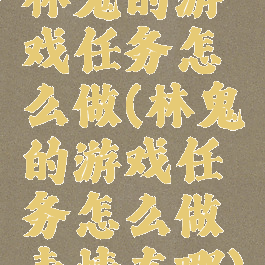 林鬼的游
戏任务怎
么做(林鬼
的游戏任
务怎么做